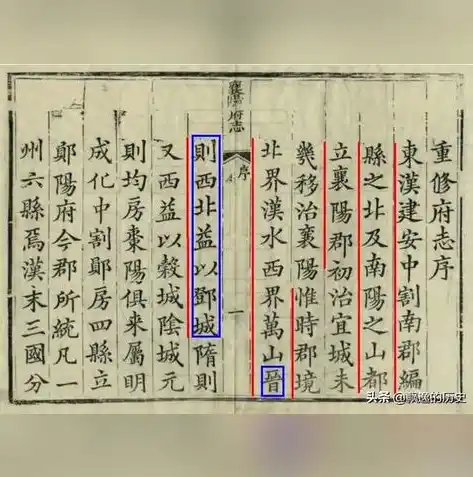 重修府志序
東漢建安中割南郡編
縣之北及南陽之山都
立襄陽郡初治宜城未
幾移治襄陽惟時郡境
北界漢水西界萬山晉
襄陽府志
序
一
則西北益以鄧城隋則
又西益以穀城陰城元
則均房棗陽俱來屬明
成化中割鄖房四縣立
鄖陽府今郡所統凡一
州六縣焉漢末三國分
头条 @飘逸的历史